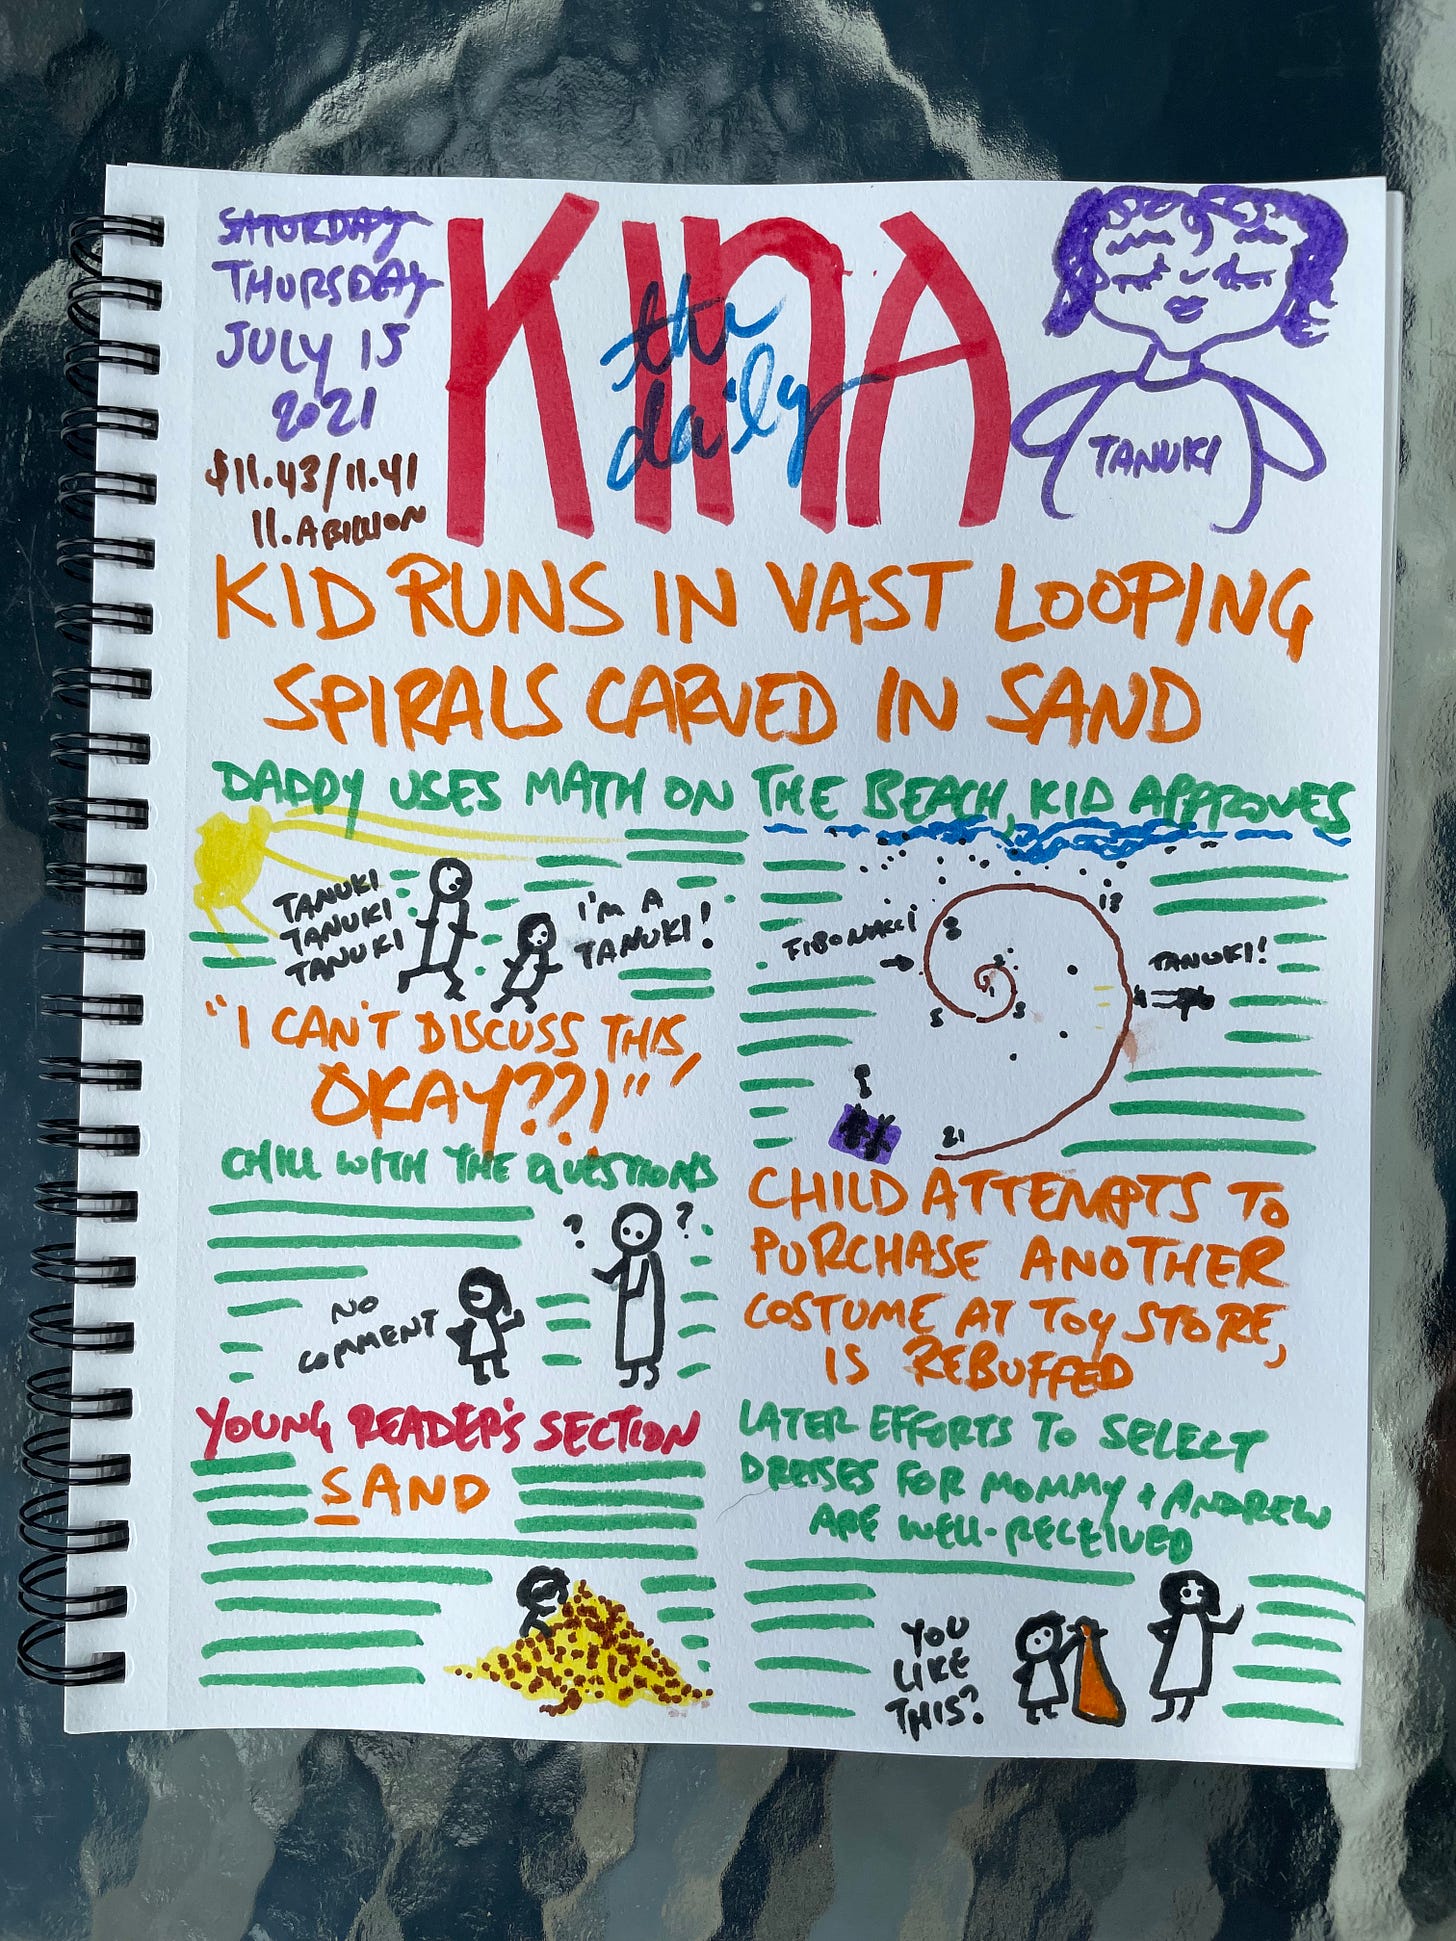 SATURDAY
THURSDAY
JULY 15
2021
$11.43/11.41
11.A BILLION
the
daily
KINA
TANUKI
KID RUNS IN VAST LOOPING
SPIRALS CARVED IN SAND
DADDY USES MATH ON THE BEACH, KID APPROVES
TANUKI
TANUKI
TANUKI
I'M A
TANUKI!
"I CAN'T DISCUSS THIS,
OKAY??!"
CHILL WITH THE QUESTIONS
? ?
NO
COMMENT
YOUNG READER'S SECTION
SAND
FIBONACCI
13
8
2
1
3
5
21
TANUKI!
CHILD ATTEMPTS TO
PURCHASE ANOTHER
COSTUME AT TOY STORE,
IS REBUFFED
LATER EFFORTS TO SELECT
DRESSES FOR MOMMY + ANDREW
ARE WELL-RECEIVED
YOU
LIKE
THIS?